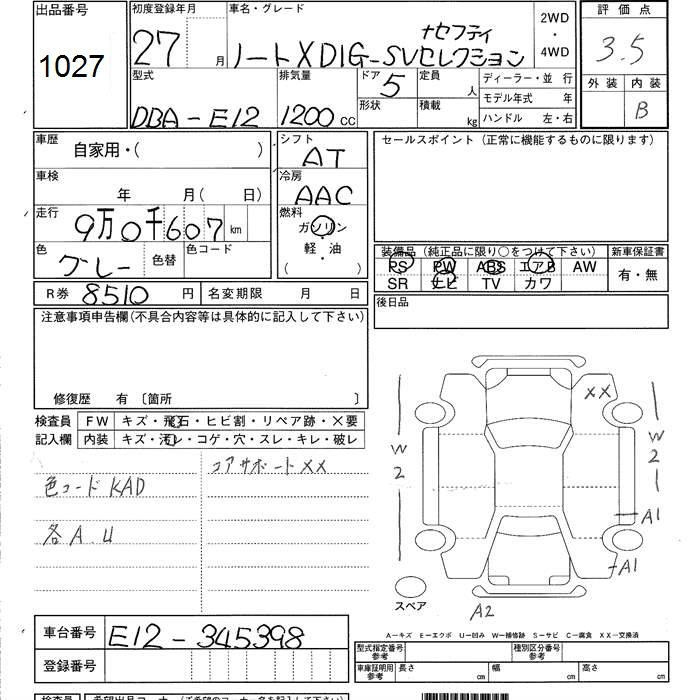 出品番号
1027
初度登録年月
27 月
車名・グレード
+セフティ
ノートX DIG-SVセレクション
2WD
・
4WD
評価点
3.5
外装 内装
B
型式
DBA-E12
排気量
1200 CC
ドア
5
形状
定員 人
積載 kg
ディーラー・並 行
モデル年式 年
ハンドル 左・右
車歴
自家用・( )
車検
年 月( 日)
走行
9万0千607 km
色
グレー
色替
色コード
シフト
AT
冷房
AAC
燃料
ガソリン
軽・油
( )
セールスポイント (正常に機能するものに限ります)
装備品 (純正品に限り○をつけて下さい)
PS PW ABS エアB AW
SR ナビ TV カワ
新車保証書
有・無
R券 8510 円
名変期限 月 日
後日品
注意事項申告欄(不具合内容等は具体的に記入して下さい)
修復歴 有 〔箇所 〕
検査員
記入欄
FW キズ・飛石・ヒビ割・リペア跡・×要
内装 キズ・汚レ・コゲ・穴・スレ・キレ・破レ
コアサポートXX
色コード KAD
各 A.U
XX
W
2
W
2
A1
A1
A2
スペア
A-キズ E-エクボ U-凹み W-補修跡 S-サビ C-腐食 XX-交換済
車台番号 E12-345398
登録番号
型式指定番号
参考
種別区分番号
参考
車庫証明用
参考
長さ cm
幅 cm
高さ cm
検査員
希望出品コーナー(ご希望のコーナー名を記入して下さい)